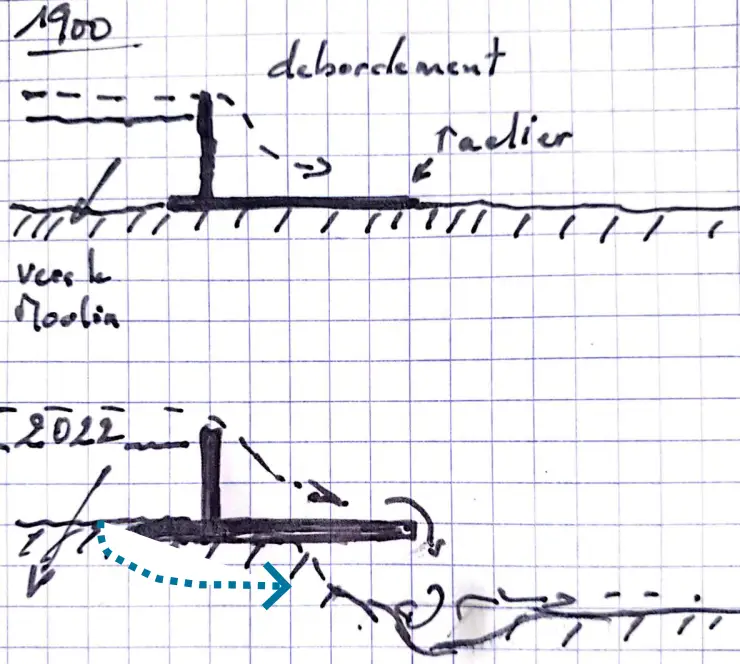 1900
debordement
radier
vers le
Moulin
2022